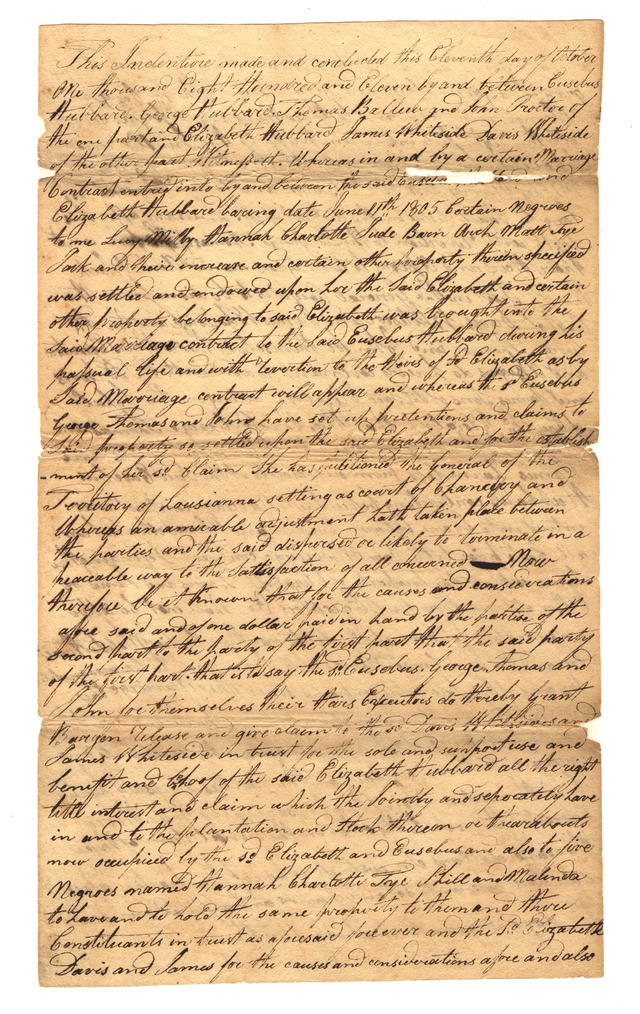 This Indenture made and concluded this Eleventh day of October
One thousand Eight Hundred and Eleven by and between Eusebus
Hubbard. George Hubbard. Thomas Ballew and John Proctor of
the one part and Elizabeth Hubbard James Whiteside Davis Whiteside
of the other part Witnesseth. Whereas in and by a certain Marriage
Contract entred into by and between the said and
Elizabeth Hubbard baring date June 11th 1805 Certain Negroes
to me Lucy Milly Hannah Charlotte Jude Barn Matt Tye
Jack and their increase and certain other property therein specified
was settled and endowed upon her the Said Elizabeth and certain
other property belonging to said Elizabeth was brought into the
Said Marriage contract to the Said Eusebus Hubbard during his
natural life and with revertion to the Heirs of Sd Elizabeth as by
Said Marriage contract will appear and whereas the sd Eusebus
George Thomas and John have set up pretentions and claims to
Said property so settled upon the said Elizabeth and for the establish
-ment of her sd Claim She has petitioned the General of the
Territory of Lousianna setting as court of Chancery and
Whereas an amicable adjustment hath taken place between
the parties and the said dispersed or likely to terminate in a
peaceable way to the Sattisfaction of all concerned — Now
therefore be it Known that for the causes and considerations
afore said and of one dollar paid in hand by the partise of the
second part to the party of the first part that the said party
of the first part that is to say the sd Eusebus. George. Thomas and
John for themselves their Hairs Executors do thereby Grant
Bargen release and give claim to the sd Davis Whitesides and
James Whiteside in trust for the sole and support use and
benefit and behoof of the said Elizabeth Hubbard all the right
title interest and claim which the Jointly and seperately have
in and to the plantation and Stock thereon or thearabouts
now occupied by the sd Elizabeth and Eusebus and also to five
Negroes named Hannah Charlotte Tye Phill and Malinda
to have and to hold the same property to them and there
Constituants in trust as aforesaid forever and the Sd Elizabeth
Davis and James for the causes and considerations afore and also